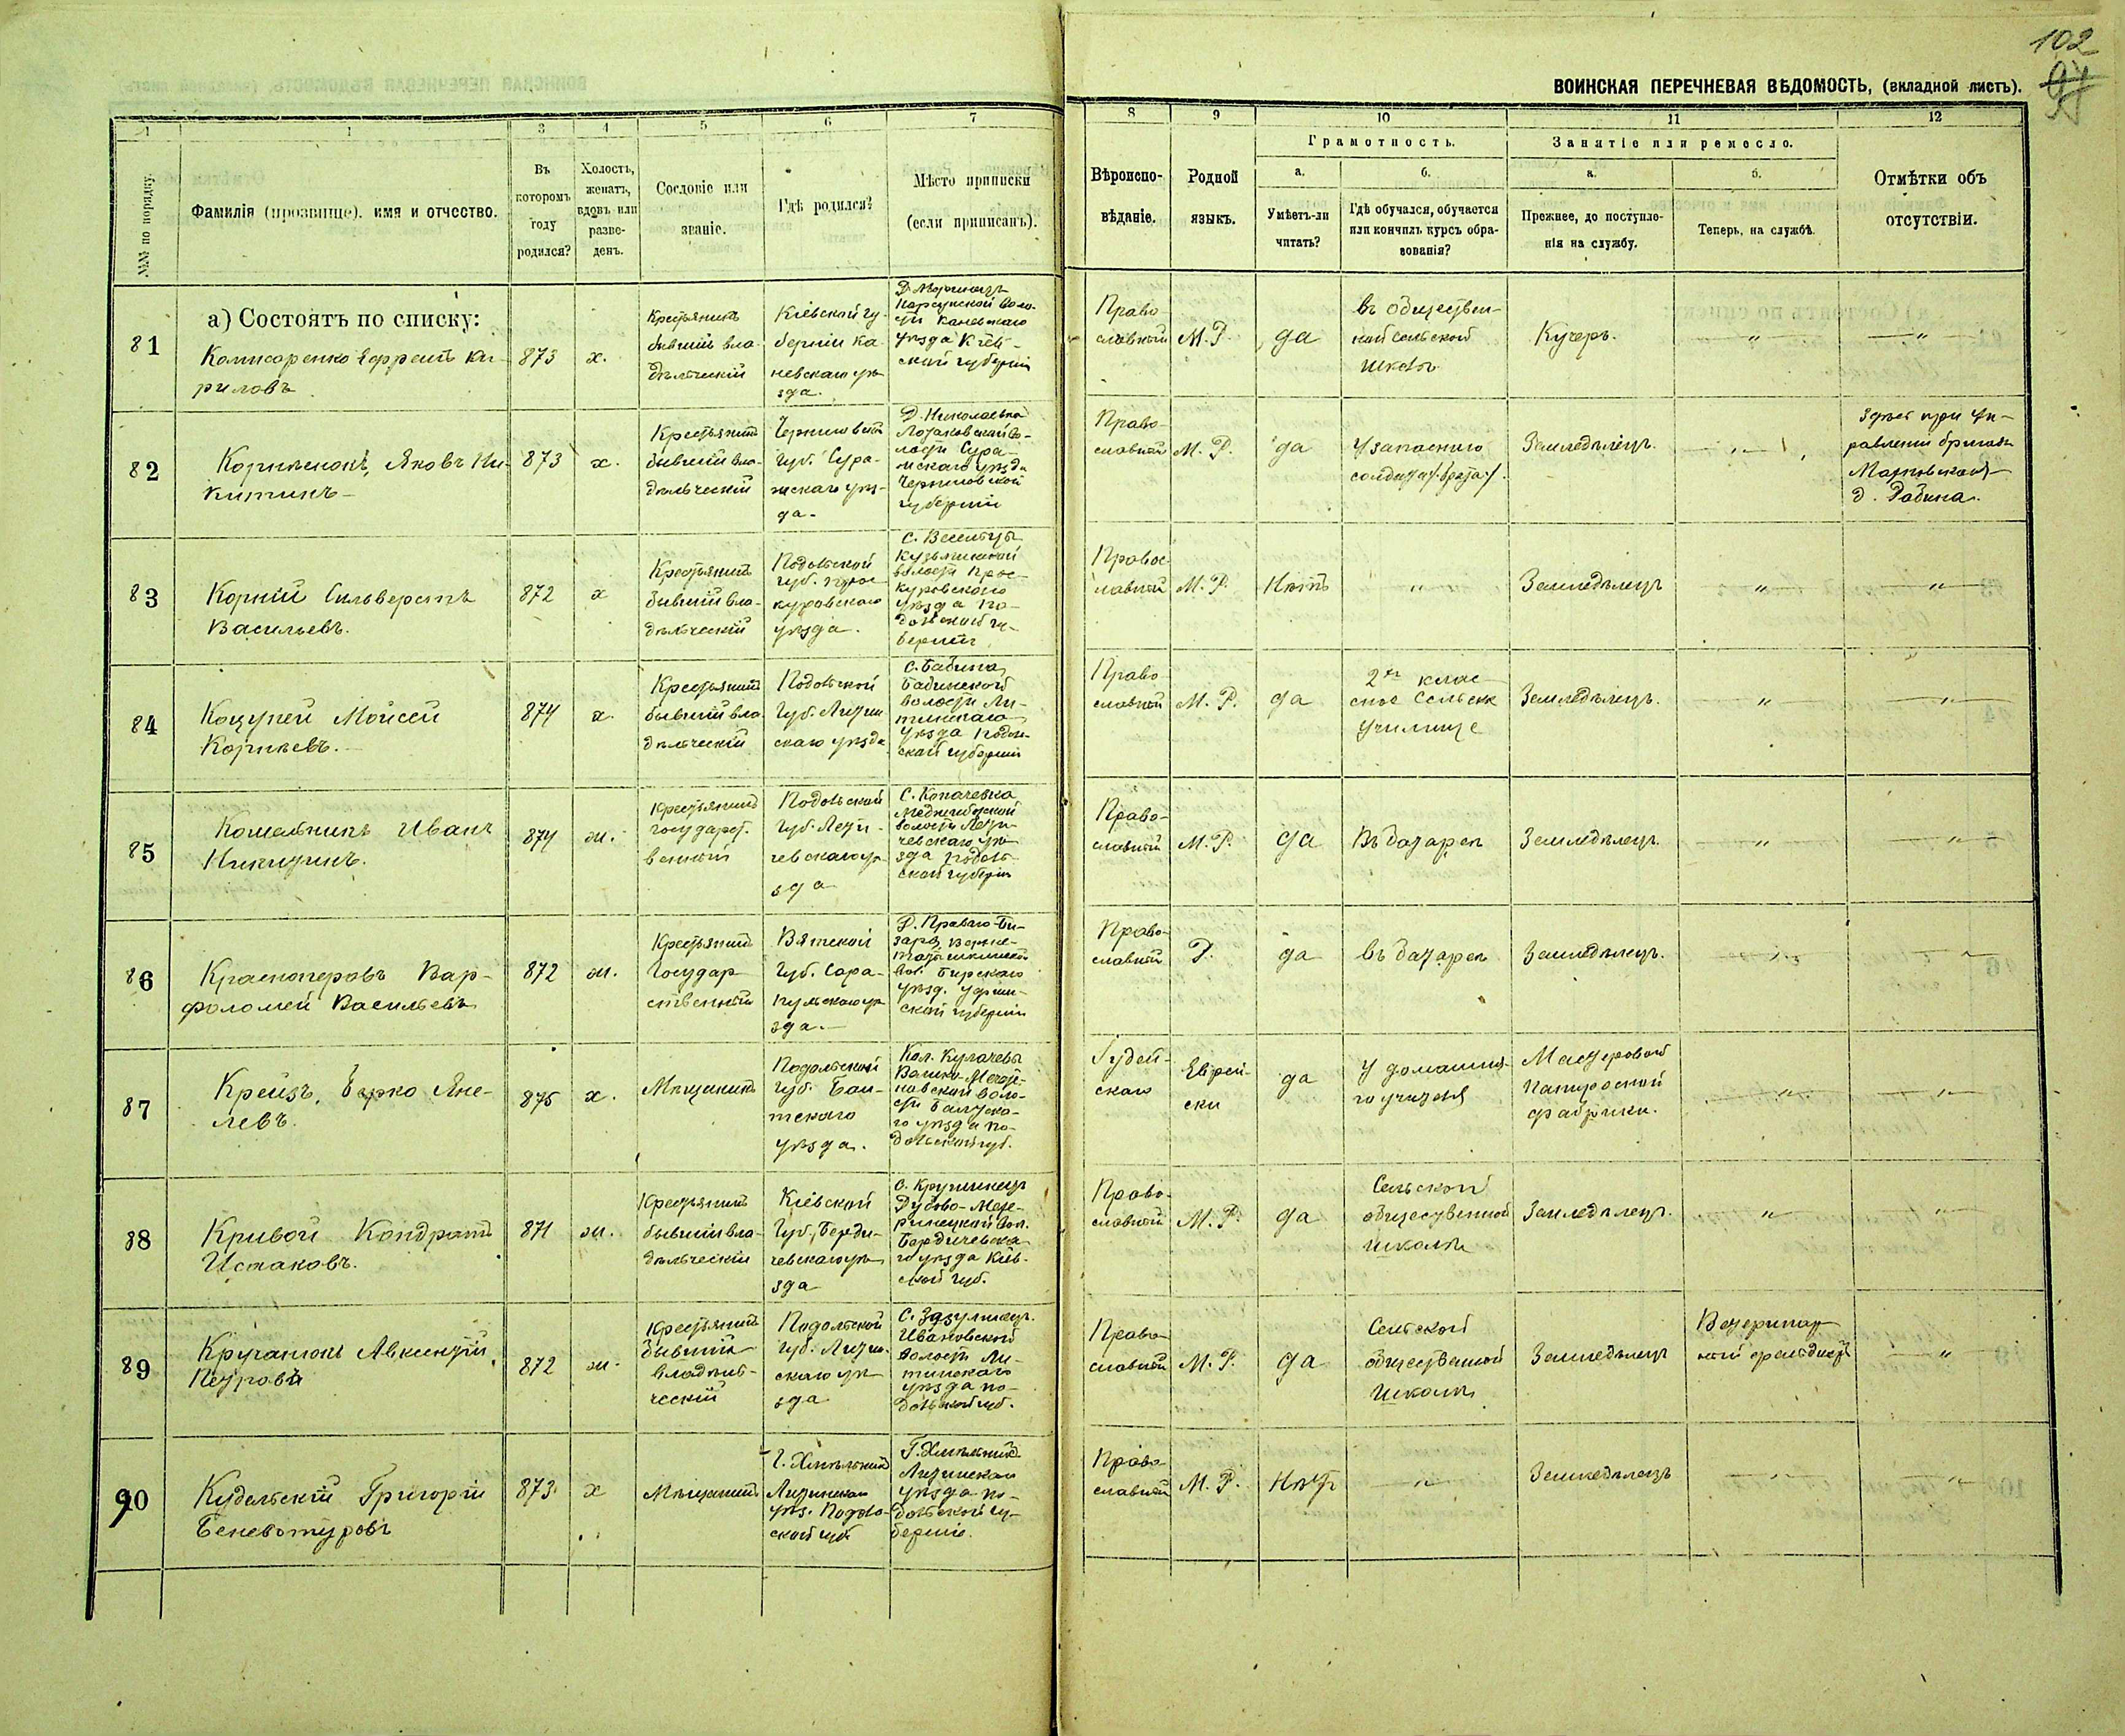 102
97
ВОИНСКАЯ ПЕРЕЧНЕВАЯ ВѢДОМОСТЬ, (вкладной листъ).
1 1 3 4 5 6 7 8 9 10 11 12
№№ по порядку.
Фамилія (прозвище), имя и отчество.
Въ
которомъ
году
родился?
Холостъ,
женатъ,
вдовъ или
разве-
денъ.
Сословіе или
званіе.
Гдѣ родился?
Мѣсто приписки
(если приписанъ).
Вѣроиспо-
вѣданіе.
Родной
языкъ.
Грамотность.
а.
Умѣетъ-ли
читать?
б.
Гдѣ обучался, обучается
или кончилъ курсъ обра-
зованія?
Занятіе или ремесло.
а.
Прежнее, до поступле-
нія на службу.
б.
Теперь, на службѣ.
Отмѣтки объ
отсутствіи.
а) Состоятъ по списку:
81
Комисаренко Ефремъ Ки-
риловъ
873
х.
Крестьянинъ
бывшій вла-
дѣльческій
Кіевской гу-
берніи Ка-
невскаго уѣ-
зда.
Корсунской воло-
сти Каневскаго
уѣзда Кіев-
ской губерніи
Право
славный
М. Р.
да
въ обществен-
ной сельской
школѣ
Кучеръ.
"
"
82
Корниенокъ, Яковъ Ни-
китинъ
873
х.
Крестьянинъ
бывшій вла-
дѣльческій
Черниговской
Губ. Сура-
жскаго уѣз-
да.
Д. Николаевка
волости Сура-
жскаго уѣзда
Черниговской
губерніи
Право-
славный
М. Р.
да
У запаснаго
солдата /брата/.
Земледѣлецъ.
"
при Уп-
равленіи
83
Корній Сильверстъ
Васильевъ.
872
х
Крестьянинъ
бывшій вла-
дѣльческій
Подольской
губ. Прос-
куровскаго
уѣзда.
Кузьминской
волости Прос-
куровскаго
уѣзда По-
дольской гу-
берніи
Правос-
лавный
М. Р.
Нѣтъ
"
Земледѣлецъ
"
"
84
Коцупей Мойсей
Корнѣевъ.
874
х.
Крестьянинъ
бывшій вла-
дѣльческій
Подольской
Губ. Литин
скаго уѣзда
С. Бабина
Бабинской
волости Ли-
тинскаго
уѣзда Подоль-
ской губерніи
Право
славный
М. Р.
да
2хъ клас-
сное Сельск
училище
Земледѣлецъ.
"
"
85
Иванъ
Никитинъ.
874
ж.
Крестьянинъ
государст-
венный
Подольской
губ. Лети-
чевскаго уѣ-
зда
С. Копачевка
Меджибожской
волости Лети-
чевскаго уѣ-
зда Подоль-
ской губерніи
Право-
славный
М. Р.
да
Въ батареѣ
Земледѣлецъ.
"
"
86
Красноперовъ Вар-
фоломей Васильевъ
872
ж.
Крестьянинъ
Государ
ственный
Вятской
Губ. Сара-
пульскаго уѣ
зда.
вол. Бирскаго
уѣзд. Уфим-
ской губерніи
Право-
славный
Р.
да
въ батареѣ
Земледѣлецъ.
"
"
87
Крейзъ, Берко Янке-
левъ.
875
х.
Мѣщанинъ
Подольской
губ. Бал-
тскаго
уѣзда.
волос-
ти Балтска-
го уѣзда По-
дольской губ.
Іудей-
скаго
Еврей-
ски
да
У домашня-
го учителя
Мастеровой
Папиросной
фабрики.
"
"
88
Кривой Кондратъ
Исааковъ.
871
ж.
Крестьянинъ
бывшій вла-
дѣльческій
Кіевской
Губ. Берди-
чевскаго уѣ
зда
Бердичевска-
го уѣзда Кіев-
ской губ.
Право-
славный
М. Р.
да
Сельской
общественной
школѣ
Земледѣлецъ.
"
"
89
Авксентій
Петровъ
872
ж.
Крестьянинъ
бывшій
владѣль-
ческій
Подольской
губ. Литин-
скаго уѣ-
зда
Ивановской
волости Ли-
тинскаго
уѣзда По-
дольской губ.
Право-
славный
М. Р.
да
Сельской
общественной
школѣ
Земледѣлецъ
Ветеринар-
ный фельдшеръ
"
90
Кудельскій Григорій
873
х
Мѣщанинъ
Г. Хмѣльникъ
Литинскаго
уѣз. Подоль-
ской губ
Г. Хмѣльникъ
Литинскаго
уѣзда По-
дольской гу-
берніи.
Право
славный
М. Р.
Нѣтъ
"
Земледѣлецъ
"
"